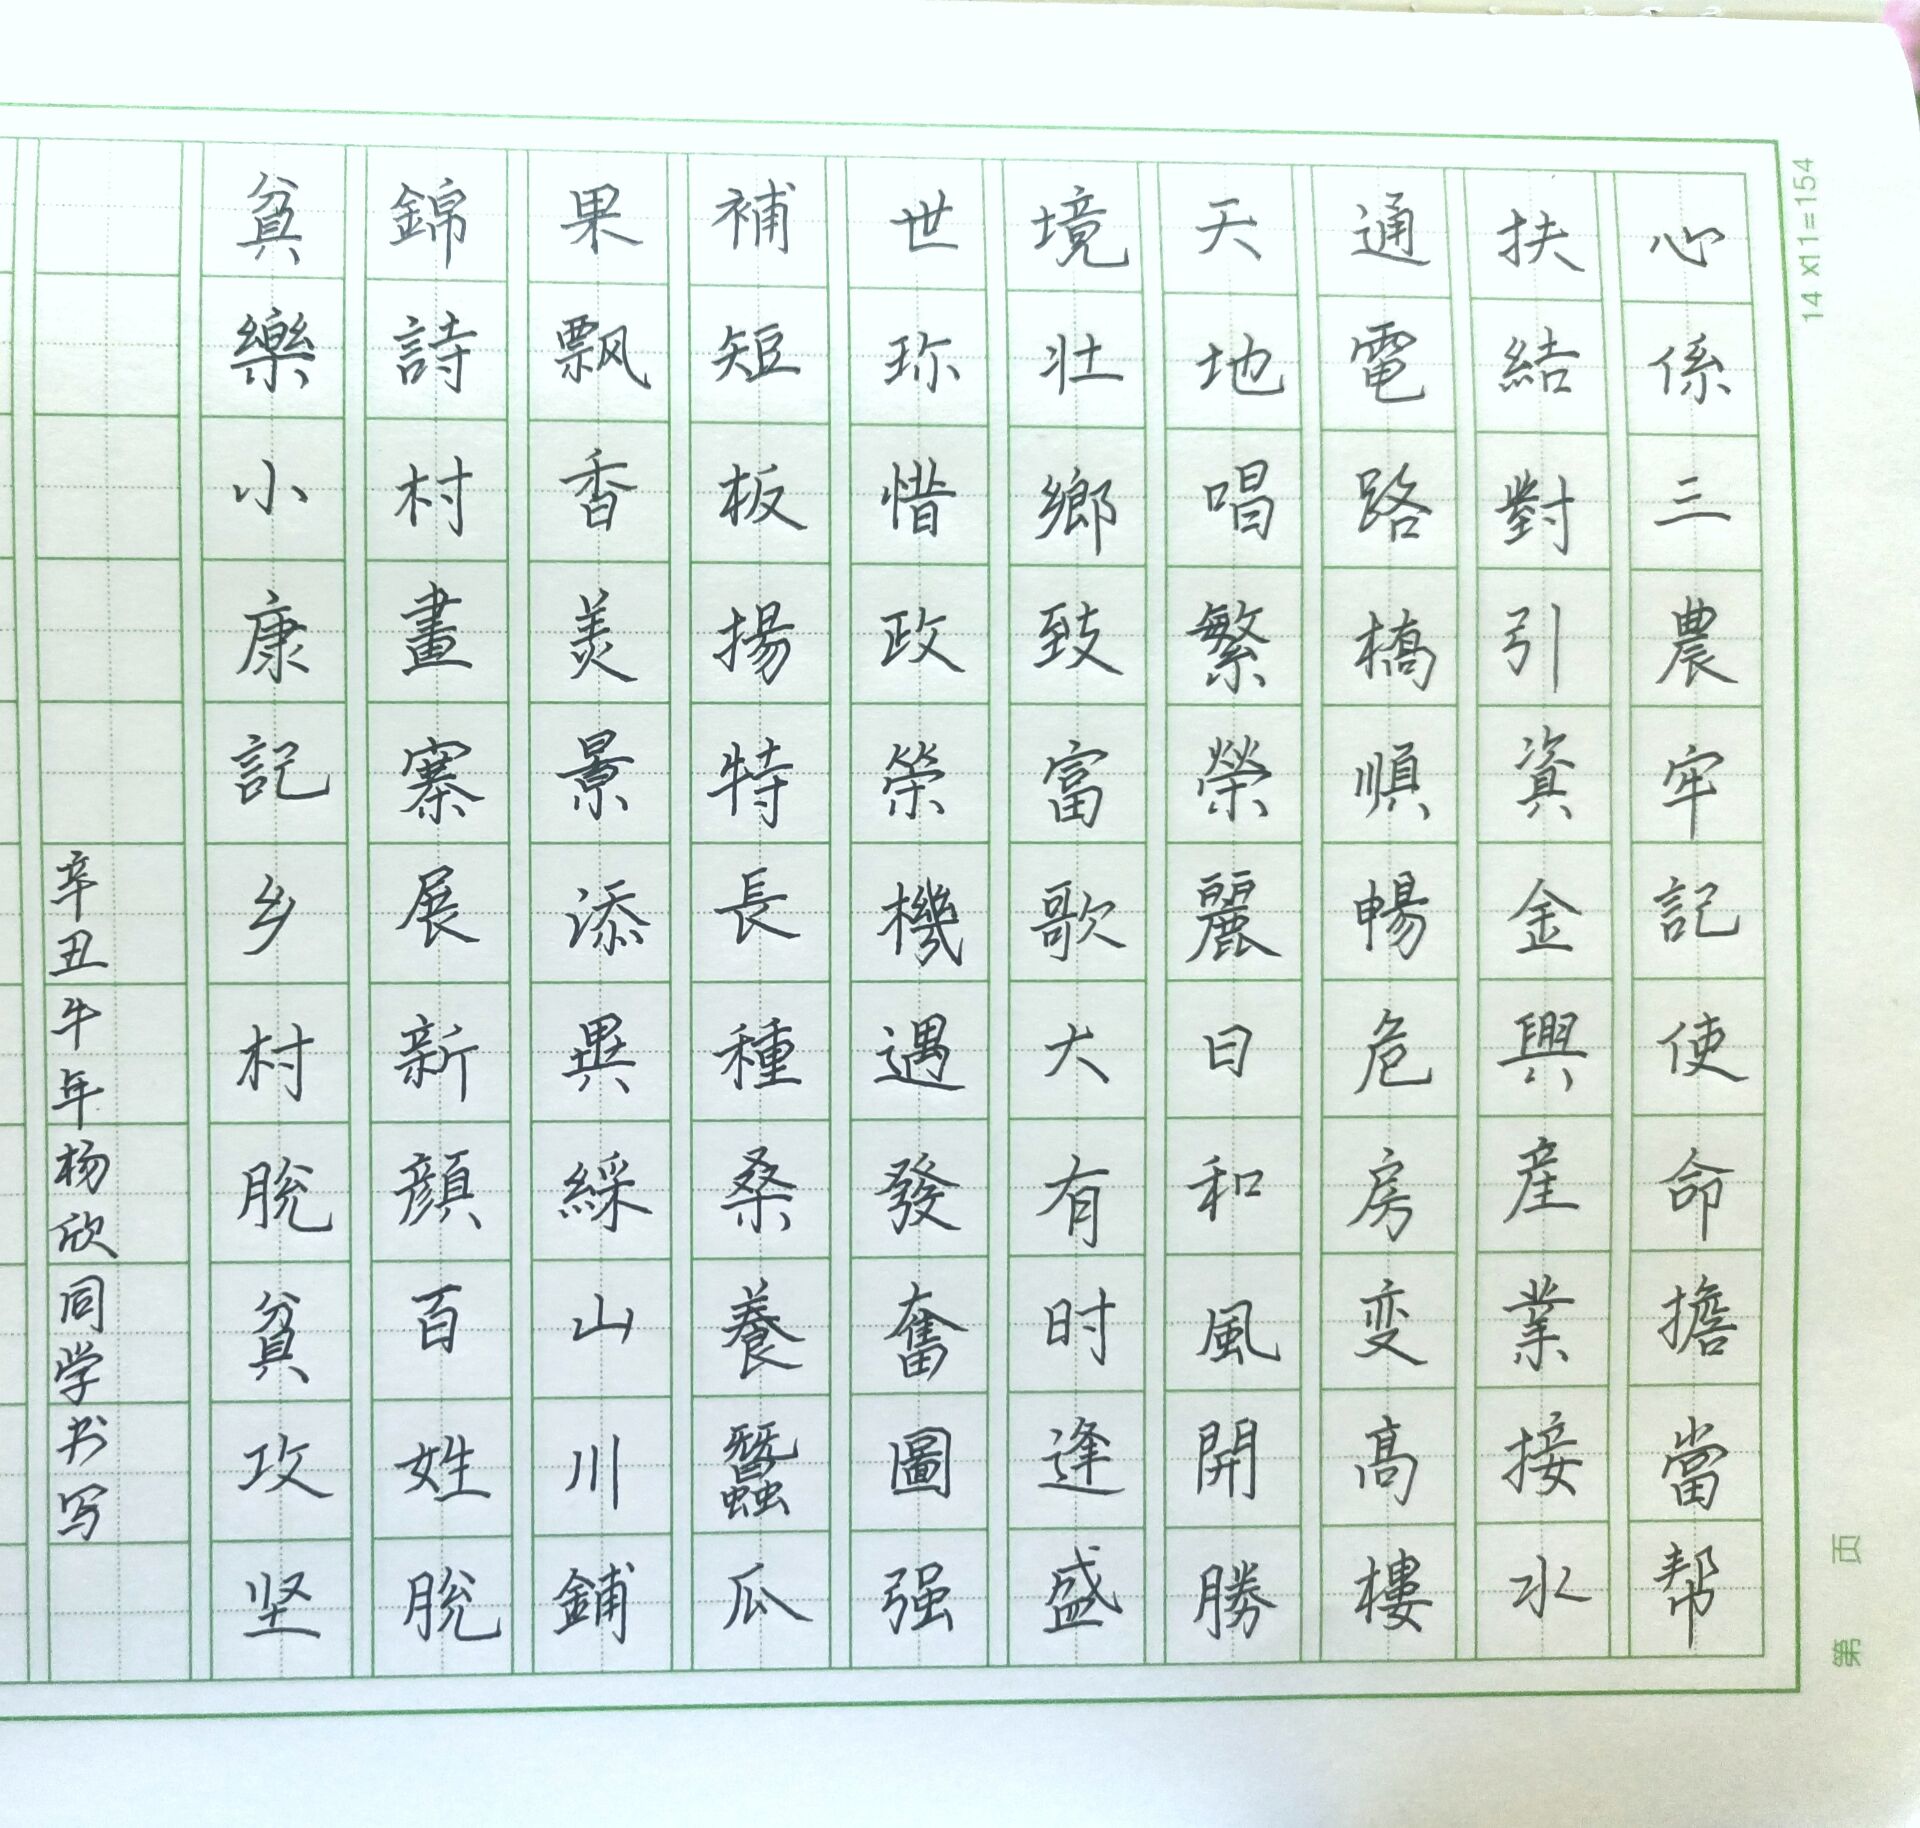 心係三農牢記使命擔當帮
扶結對引資金興產業接水
通電路橋順暢危房变高樓
天地唱繁榮麗日和風開勝
境壮鄉致富歌大有时逢盛
世珎惜政策機遇發奮圖强
補短板揚特長種桑養蠶瓜
果飘香美景添異綵山川鋪
錦詩村畫寨展新顔百姓脱
貧樂小康記乡村脱貧攻坚
辛丑牛年杨欣同学书写
14×11=154
第 页